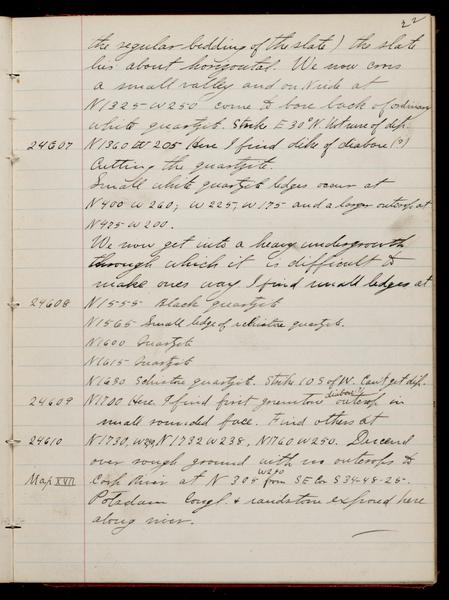 22
the regular bedding of the slate) the slate
lies about horizontal. We now cross
a small valley and on N side at
N1325 W250 come to bare back of ordinary
white quartzite. Strike E 30° N. Not sure of dip.
24607 N1360 W 205 Here I find dike of diabase (?)
Cutting the quartzite.
Small white quartzite ledges occur at
N1400 W 260; W 225, W 175 and a larger outcrop at
N1475 W200.
We now get into a heavy undergrowth
through which it is difficult to
make ones way I find small ledges at
24608 N1555 Black quartzite
N1565 Small ledge of schistose quartzite.
N1600 Quartzite
N1615 Quartzite
N1680 Schistose quartzite. Strike 10 S of W. Can't get dip.
24609 N1700 Here I find first greenstone diabase outcrop in
small rounded face. Find others at
24610 N1730, N1732 W238, N1760 W250. Descend
over rough ground with no outcrops to
Map XVII Cork River at N 308 W290 from SE Cor S 34-48-25.
Potsdam Congl. & sandstone exposed here
along river.